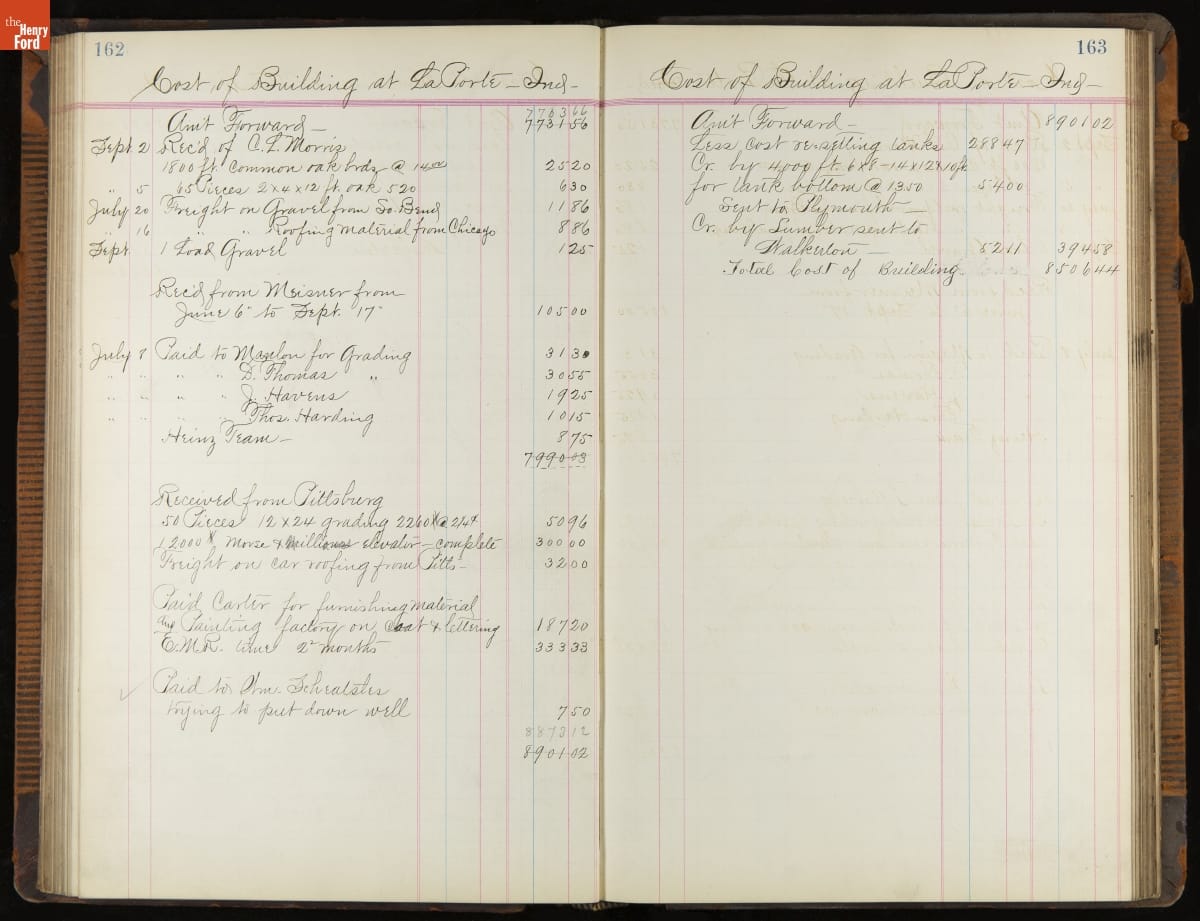 the Henry Ford
162
Cost of Building at LaPorte – Ind –
770366
Am't Forward – 773156
Sept 2 Rec'd of C. L. Morris
1800 ft. Common oak brds @ 14.00 2520
" 5 65 Pieces 2x4x12 ft. oak 520 630
July 20 Freight on Gravel from So. Bend 1186
" 16 " " Roofing material from Chicago 886
Sept. 1 Load Gravel 125
Rec'd from Meisner from
June 6" to Sept. 17" 10500
July 8 Paid to for Grading 3130
" " " " D. Thomas " 3055
" " " " J. Havens 1925
" " " " Thos. Harding 1015
Heinz Team – 875
799003
Received from Pittsburg
50 Pieces 12x24 grading 2260# @ 2¼¢ 5096
1 2000# Morse & elevator – complete 30000
Freight on car roofing from Pitts – 3200
Paid Carter for furnishing material
and Painting factory on coat & lettering 18720
E.M.R. time 2" months 33333
Paid to Wm.
trying to put down well 750
887312
890102
163
Cost of Building at LaPorte – Ind –
Am't Forward – 890102
Less cost re-setting tanks 28847
Cr. by 4000 ft. 6x8 – 14x12x10ft
for tank bottom @ 1350 5400
Sent to Plymouth –
Cr. by Lumber sent to
Walkerton – 5211 39458
Total Cost of Building 850644